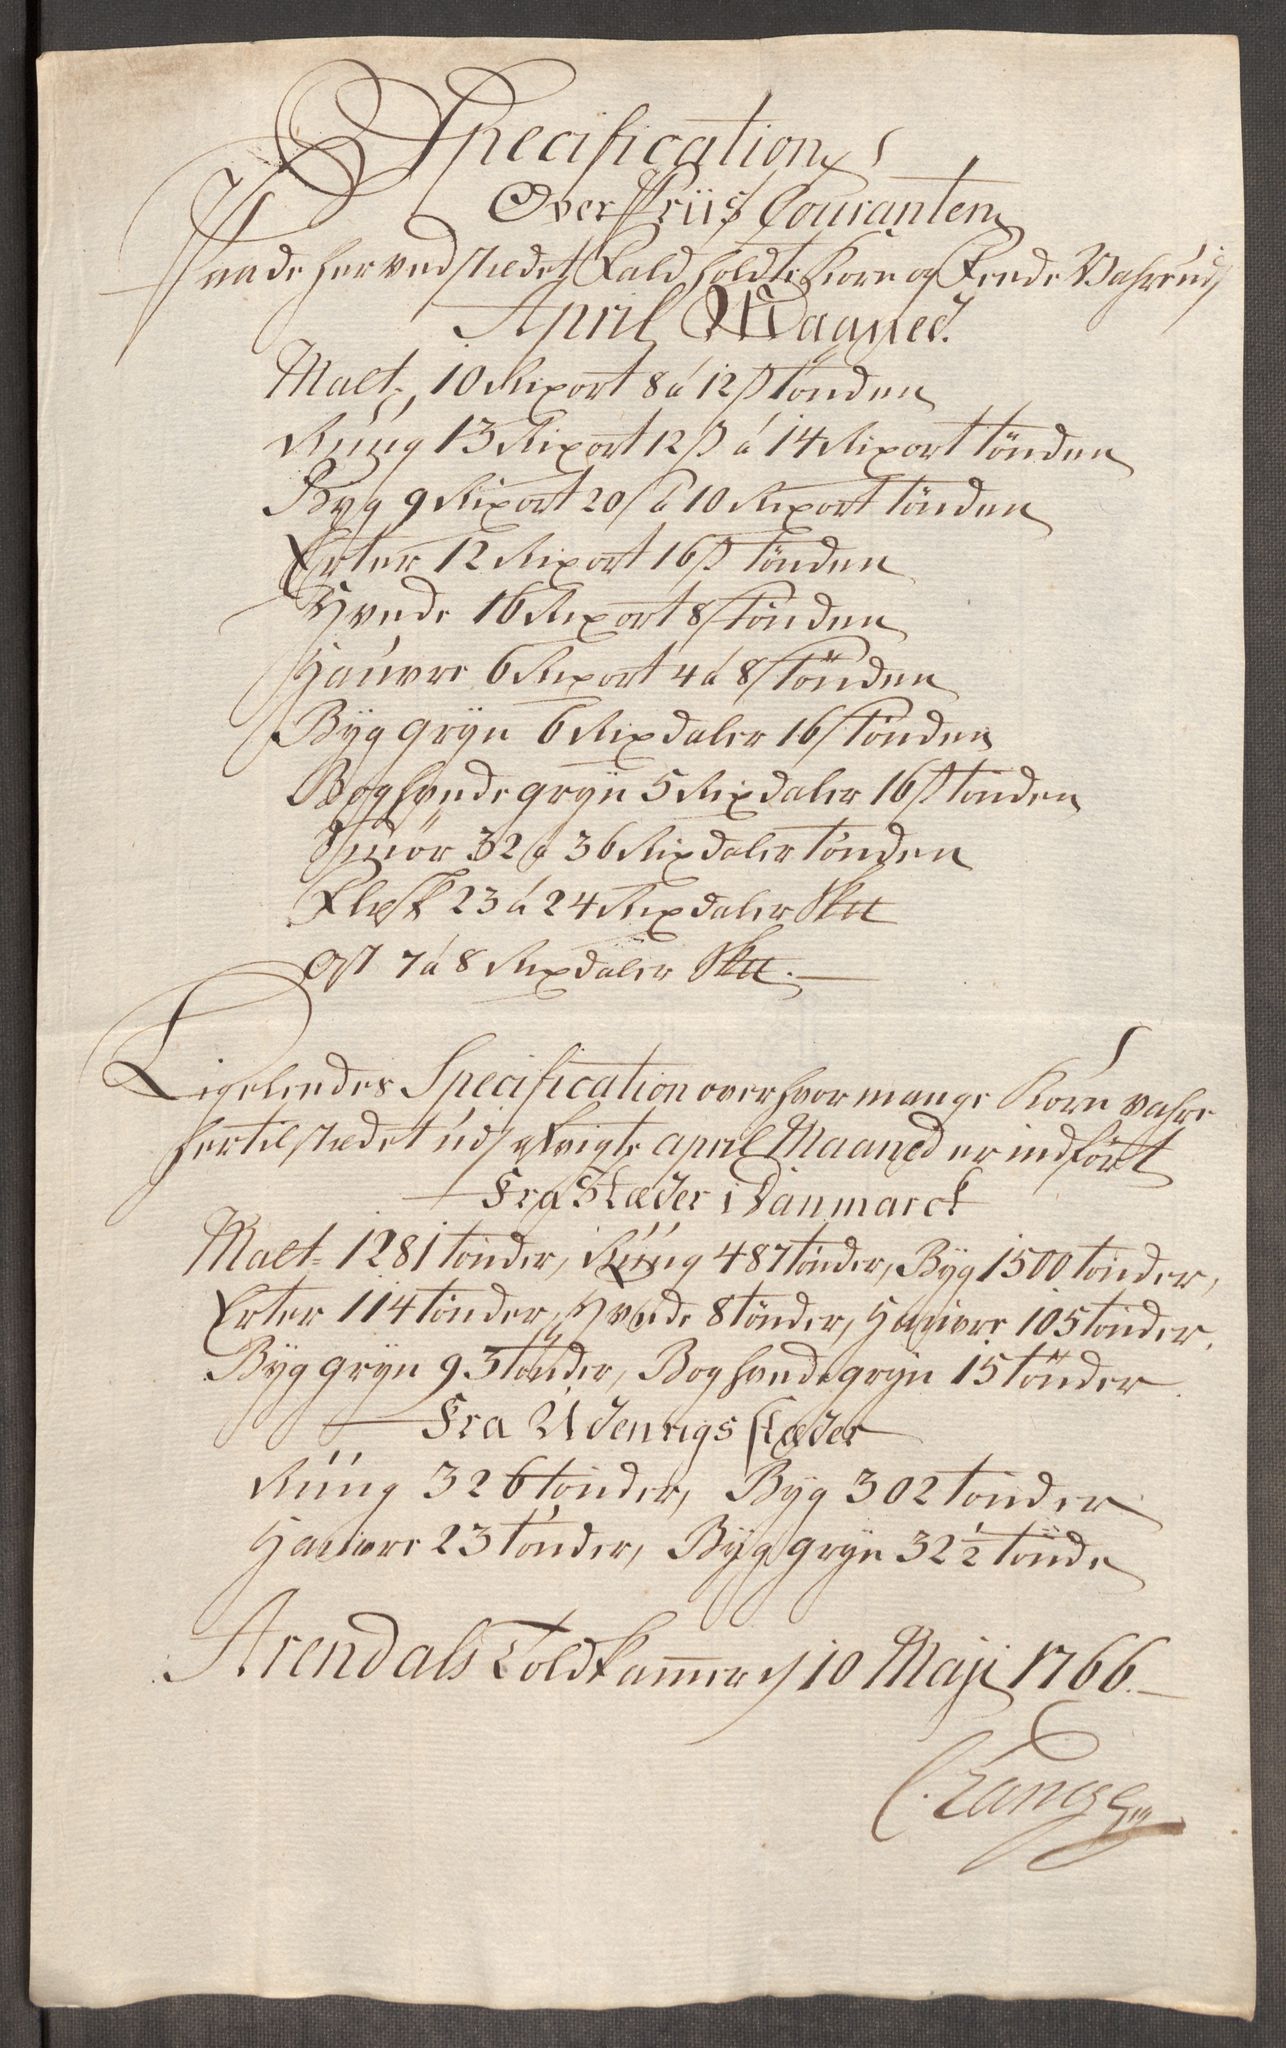 Specification
Over Priis Couranten
Paa de her ved stædet Fald holdte Korn og Feede Vahre udj
April Maaned.
Malt, 10 Rixort 8 á 12 s tønden
Rúúg 13 Rixort 12 s á 14 Rixort tønden
Byg 9 Rixort 20 s á 10 Rixort tønden
Erter 12 Rixort 16 s tønden
Hvede 16 Rixort 8 s tønden
Haúvre 6 Rixort 4 á 8 s tønden
Byg gryn 6 Rixdaler 16 s tønden
Boghvede gryn 5 Rixdaler 16 s tønden
Smør 32 á 36 Rixdaler tønden
Flesk 23 á 24 Rixdaler Sk℔
Ost 7 á 8 Rixdaler Sk℔.
Ligeleedes Specification over hvor mange Korn vahre
her til stædet údj April Maaned er indført
Fra Stæder i Danmarck
Malt 1281 tønder, Rúúg 487 tønder, Byg 1500 tønder,
Erter 114 tønder, Hvede 8 tønder, Haúvre 105 tønder,
Byg gryn 93 tønder, Boghvede gryn 15 tønder
Fra Udenrigs stæder
Rúúg 326 tønder, Byg 302 tønder
Haúvre 23 tønder, Byg gryn 32 1/2 tønde
Arendals Toldkammer d 10 Maji 1766.
C. Lange